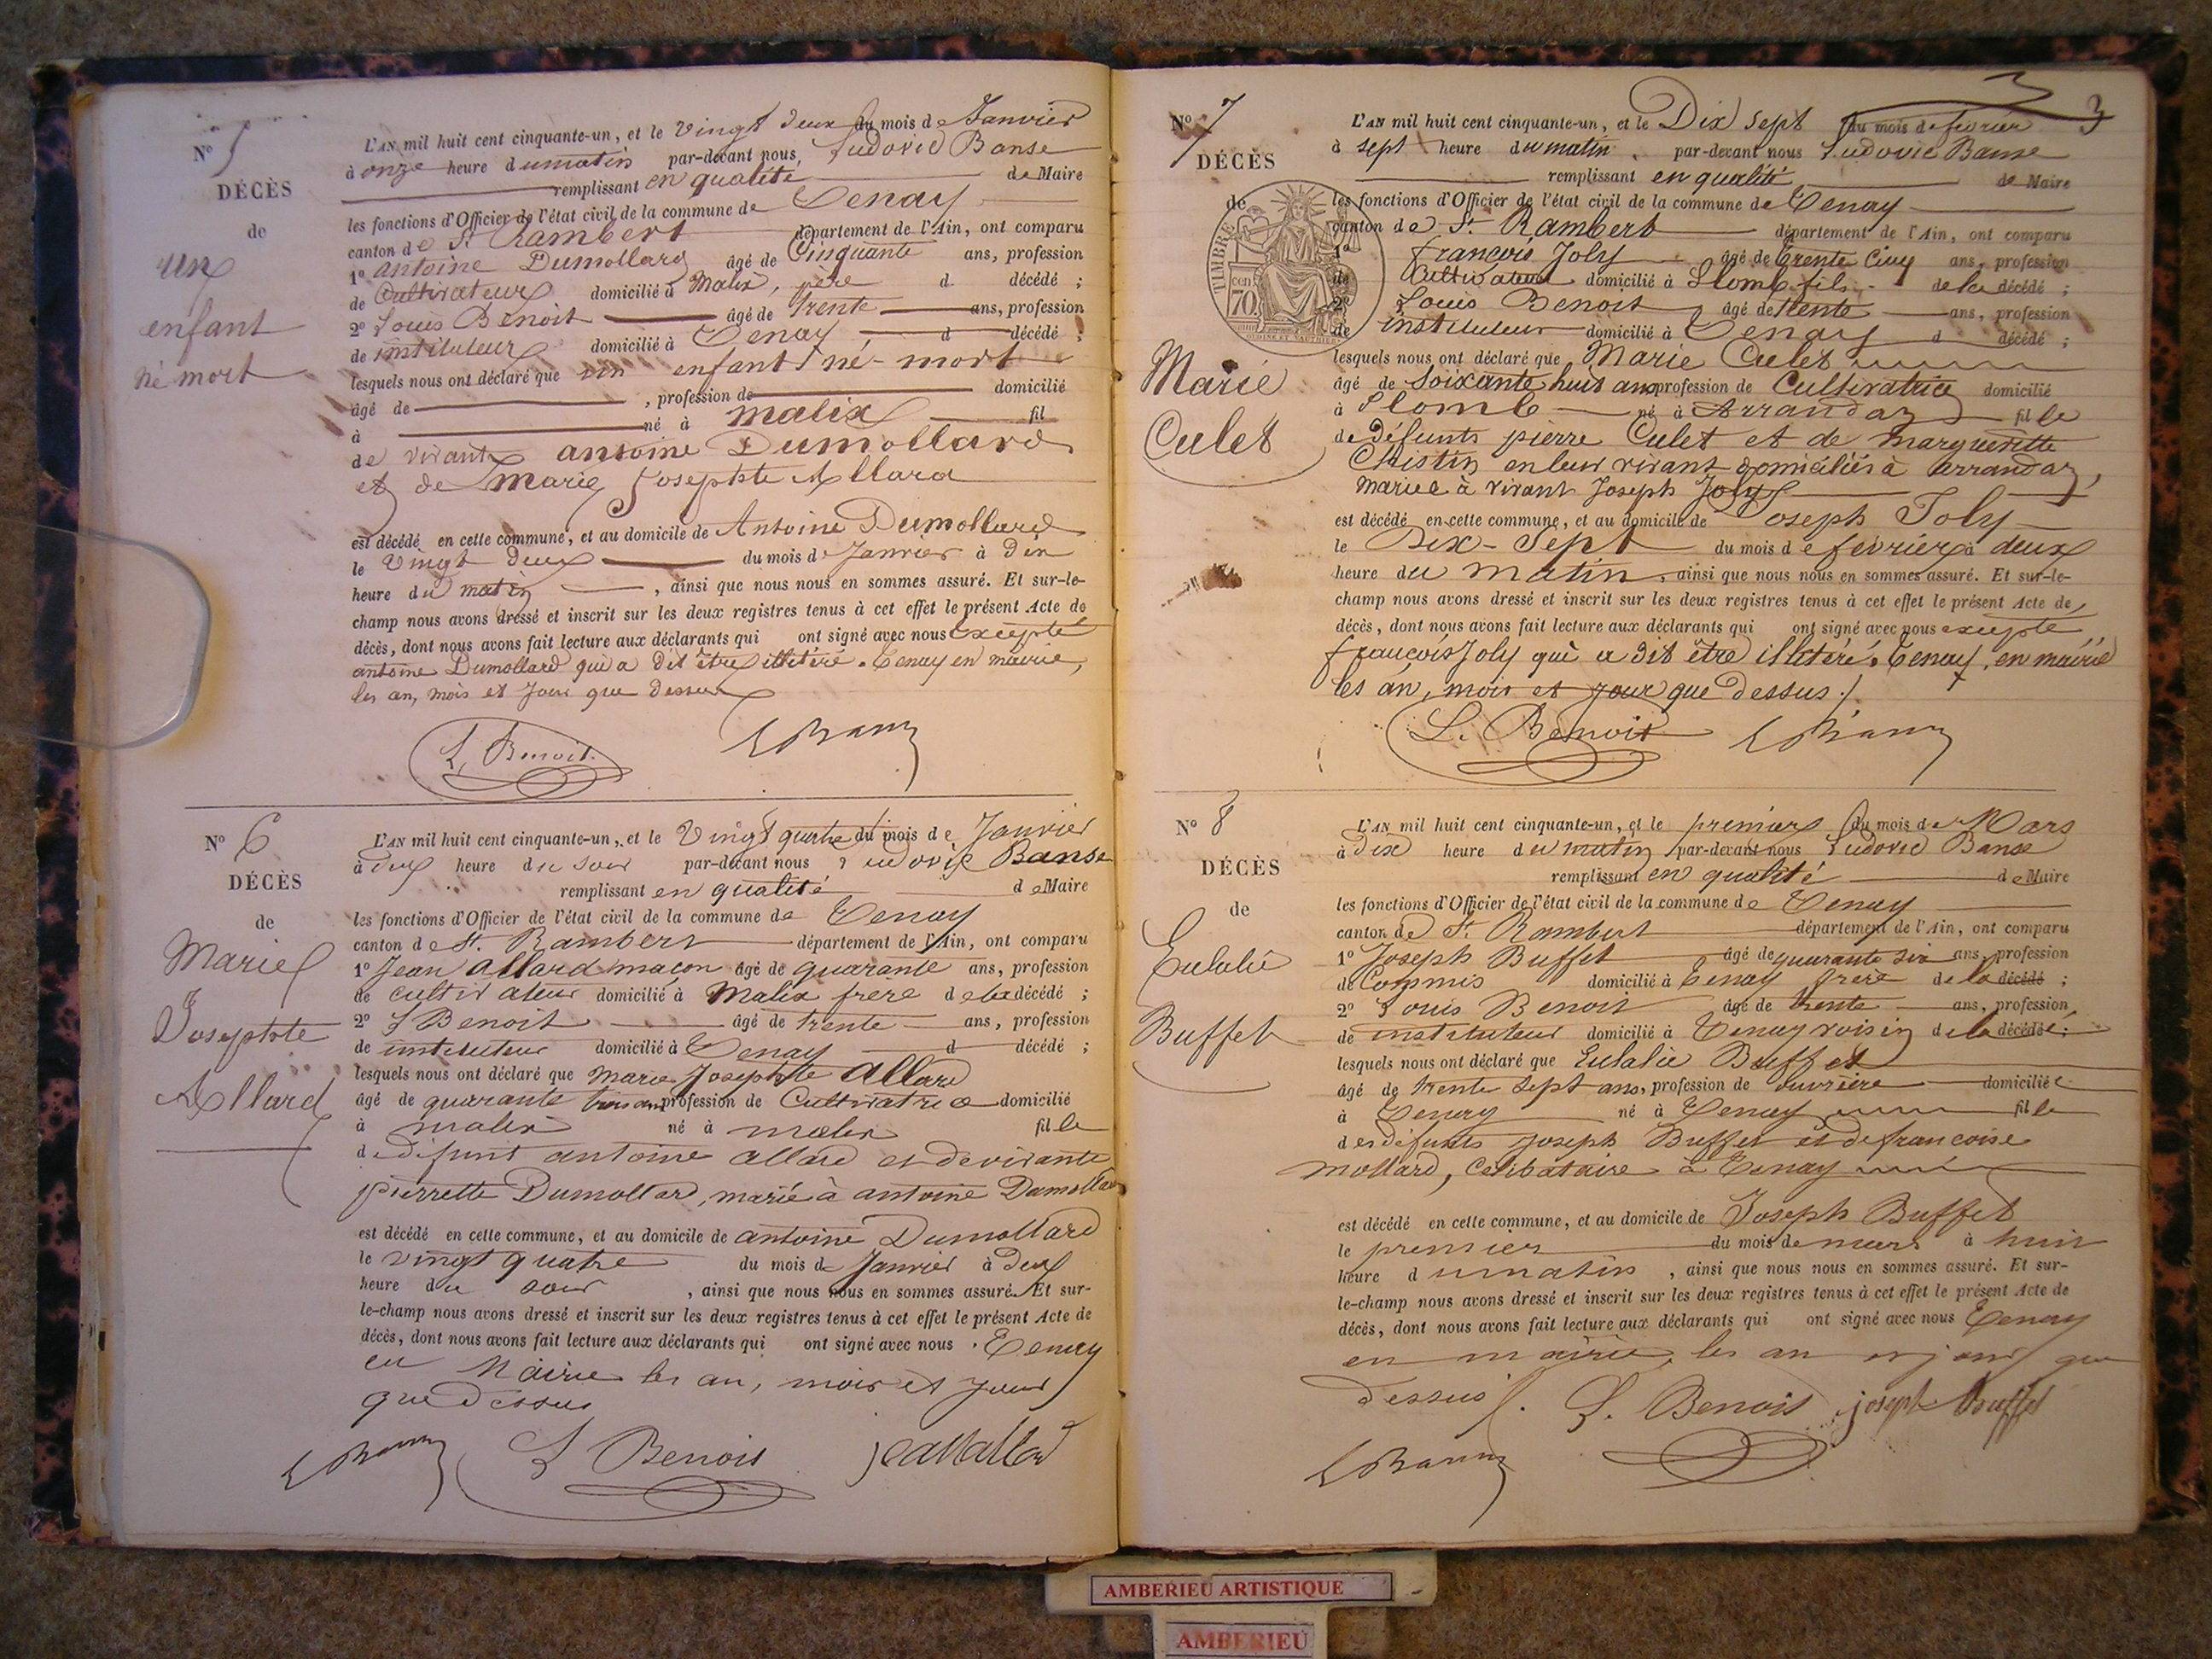 N° 5
DÉCÈS
de
un
enfant
né mort
L'AN mil huit cent cinquante-un, et le Vingt deux du mois de Janvier
à onze heure du matin par-devant nous, Ludovic Banse
remplissant en qualité de Maire
les fonctions d'Officier de l'état civil de la commune de Tenay
canton de St Rambert département de l'Ain, ont comparu
1° antoine Dumollard âgé de Cinquante ans, profession
de Cultivateur domicilié à Malix, père d décédé ;
2° Louis Benoit âgé de trente ans, profession
de instituteur domicilié à Tenay d décédé ;
lesquels nous ont déclaré que un enfant né-mort
âgé de , profession de domicilié
à né à malix fil
de vivants antoine Dumollard
et de Marie Josephte Allard
est décédé en cette commune, et au domicile de Antoine Dumollard
le Vingt deux du mois de Janvier à dix
heure du matin , ainsi que nous nous en sommes assuré. Et sur-le-
champ nous avons dressé et inscrit sur les deux registres tenus à cet effet le présent Acte de
décès, dont nous avons fait lecture aux déclarants qui ont signé avec nous excepté
antoine Dumollard qui a dit être illétéré. Tenay en mairie,
les an, mois et Jour que dessus
L. Benoit. LBanse
N° 6
DÉCÈS
de
Marie
Josephte
Allard
L'AN mil huit cent cinquante-un, et le Vingt quatre du mois de Janvier
à six heure du soir par-devant nous Ludovic Banse
remplissant en qualité de Maire
les fonctions d'Officier de l'état civil de la commune de Tenay
canton de St. Rambert département de l'Ain, ont comparu
1° Jean Allard maçon âgé de quarante ans, profession
de cultivateur domicilié à Malix frere de la décédé ;
2° L Benoit âgé de trente ans, profession
de instituteur domicilié à Tenay d décédé ;
lesquels nous ont déclaré que Marie Josephte Allard
âgé de quarante trois ans profession de Cultivatrice domicilié
à malix né à malix fille
de défunt antoine allard et de vivante
pierrette Dumollard, marié à antoine Dumollard
est décédé en cette commune, et au domicile de antoine Dumollard
le vingt quatre du mois de Janvier à deux
heure du soir , ainsi que nous nous en sommes assuré. Et sur-
le-champ nous avons dressé et inscrit sur les deux registres tenus à cet effet le présent Acte de
décès, dont nous avons fait lecture aux déclarants qui ont signé avec nous . Tenay
en Mairie les an, mois et jour
que dessus
LBanse L Benoit jeanallard
3
N° 7
DÉCÈS
de
TIMBRE
70 cen
Marie
Culet
L'AN mil huit cent cinquante-un, et le Dix sept du mois de février
à sept heure du matin, par-devant nous Ludovic Banse
remplissant en qualité de Maire
les fonctions d'Officier de l'état civil de la commune de Tenay
canton de St. Rambert département de l'Ain, ont comparu
1° françois Joly âgé de trente cinq ans, profession
de Cultivateur domicilié à Plomb fils de la décédé ;
2° Louis Benoit âgé de trente ans, profession
de instituteur domicilié à Tenay d décédé ;
lesquels nous ont déclaré que Marie Culet
âgé de soixante huit ans profession de Cultivatrice domicilié
à Plomb né à Arrandaz fille
de Défunts pierre Culet et de margueritte
Christin en leur vivant domiciliés à arrandaz,
mariée à vivant Joseph Joly
est décédé en cette commune, et au domicile de Joseph Joly
le Dix-Sept du mois de février à deux
heure du matin, ainsi que nous nous en sommes assuré. Et sur-le-
champ nous avons dressé et inscrit sur les deux registres tenus à cet effet le présent Acte de
décès, dont nous avons fait lecture aux déclarants qui ont signé avec nous excepté
françois Joly qui a dit être illétéré. Tenay, en mairie
les an, mois et jour que dessus./
L. Benoit LBanse
N° 8
DÉCÈS
de
Eulalie
Buffet
L'AN mil huit cent cinquante-un, et le premier du mois de Mars
à dix heure du matin par-devant nous Ludovic Banse
remplissant en qualité de Maire
les fonctions d'Officier de l'état civil de la commune de Tenay
canton de St. Rambert département de l'Ain, ont comparu
1° Joseph Buffet âgé de quarante six ans, profession
de Commis domicilié à Tenay frere de la décédé ;
2° Louis Benoit âgé de trente ans, profession
de instituteur domicilié à Tenay voisin de la décédé ;
lesquels nous ont déclaré que Eulalie Buffet
âgé de trente sept ans, profession de ouvriere domicilié
à Tenay né à Tenay fille
des défunts Joseph Buffet et de francoise
mollard, Celibataire à Tenay
est décédé en cette commune, et au domicile de Joseph Buffet
le premier du mois de mars à huit
heure du matin , ainsi que nous nous en sommes assuré. Et sur-
le-champ nous avons dressé et inscrit sur les deux registres tenus à cet effet le présent Acte de
décès, dont nous avons fait lecture aux déclarants qui ont signé avec nous Tenay
en mairie, les an et jour que
dessus /. L. Benoit joseph buffet
LBanse
AMBERIEU ARTISTIQUE
AMBERIEU